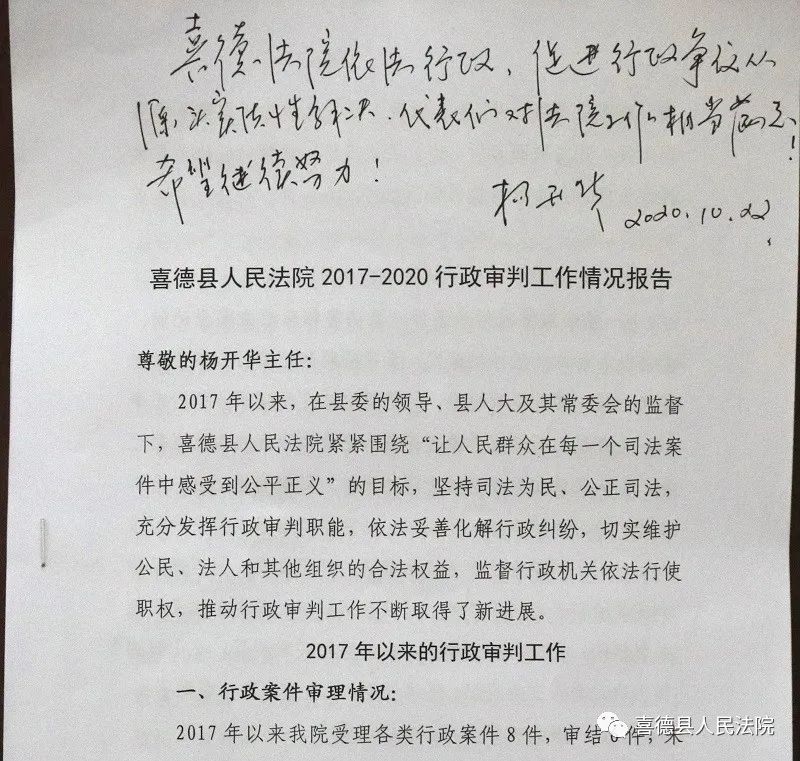 喜德法院依法行政，促进行政争议从
源头实质性解决。代表们对法院工作相当满意！
希望继续努力！
杨开华 2020.10.22
喜德县人民法院 2017-2020 行政审判工作情况报告
尊敬的杨开华主任：
2017 年以来，在县委的领导、县人大及其常委会的监督
下，喜德县人民法院紧紧围绕“让人民群众在每一个司法案
件中感受到公平正义”的目标，坚持司法为民、公正司法，
充分发挥行政审判职能，依法妥善化解行政纠纷，切实维护
公民、法人和其他组织的合法权益，监督行政机关依法行使
职权，推动行政审判工作不断取得了新进展。
2017 年以来的行政审判工作
一、行政案件审理情况：
2017 年以来我院受理各类行政案件 8 件，审结 6 件，未
喜德县人民法院